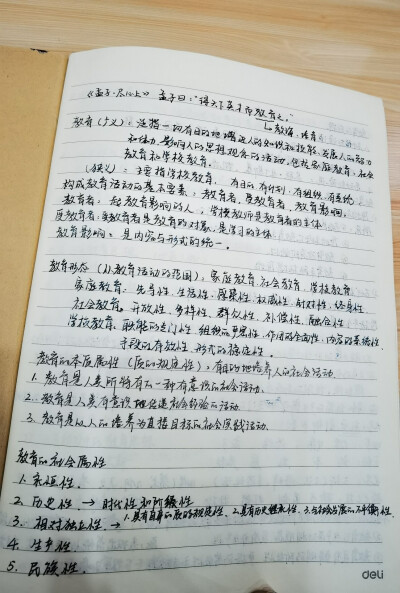 《孟子·尽心上》 孟子曰:"得天下英才而教育之。"
↳教诲,培育
教育(广义):泛指一切有目的地增进人的知识和技能,发展人的智力
和体力,影响人的思想观念的活动,包括家庭教育、社会
教育和学校教育。
(狭义):主要指学校教育。有目的有计划、有组织、有系统
构成教育活动的基本要素:教育者,受教育者,教育影响。
教育者:起教育影响的人,学校教师是教育者的主体
受教育者:受教育者是教育的对象,是学习的主体
教育影响:是内容与形式的统一。
教育形态(从教育活动的范围):家庭教育、社会教育、学校教育
家庭教育:先导性、生活性、感染性、权威性、针对性、终身性
社会教育。开放性,多样性,群众性,补偿性,融合性
学校教育,职能的专门性,组织的严密性,作用的全面性,内容的系统性
手段的有效性,形式的稳定性。
教育的本质属性(质的规定性):有目的地培养人的社会活动
1. 教育是人类所特有的一种有意识的社会活动.
2. 教育是人类有意识地传递社会经验的活动.
3. 教育是以人的培养为直接目标的社会实践活动.
教育的社会属性
1. 永恒性.
2. 历史性 → 时代性和阶级性
3. 相对独立性 → 1.具有自身的质的规定性, 2.具有历史继承性, 3.与政治发展的不平衡性.
4. 生产性
5. 民族性.
deli